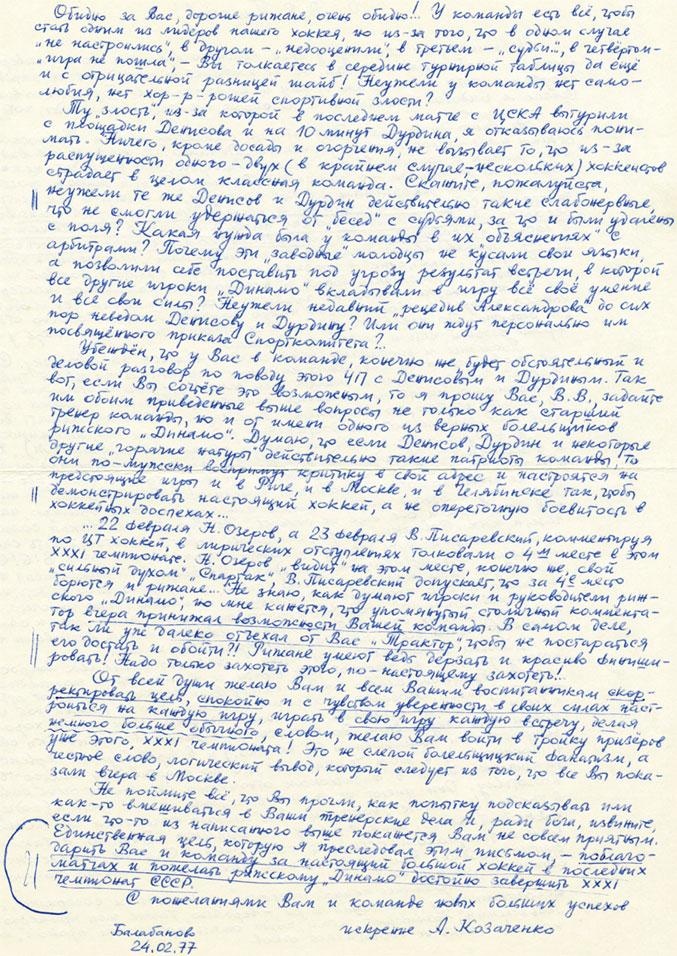 Обидно за Вас, дорогие рижане, очень обидно!.. У команды есть всё, чтобы
стать одним из лидеров нашего хоккея, но из-за того, что в одном случае
"не настроились", в другом – "недооценили", в третьем – "судьи...", в четвёртом –
"игра не пошла", – Вы толкаетесь в середине турнирной таблицы да ещё
и с отрицательной разницей шайб! Неужели у команды нет само-
любия, нет хор-р-рошей спортивной злости?
Ту "злость", из-за которой в последнем матче с ЦСКА вытурили
с площадки Денисова и на 10 минут Дурдина, я отказываюсь пони-
мать. Ничего, кроме досады и огорчения, не вызывает то, что из-за
распущенности одного-двух (в крайнем случае – нескольких) хоккеистов
страдает в целом классная команда. Скажите, пожалуйста,
неужели те же Денисов и Дурдин действительно такие слабонервные,
что не смогли удержаться от "бесед" с судьями, за что и были удалены
с поля? Какая нужда была у команды в их "объяснениях" с
арбитрами? Почему эти "заводные" молодцы не кусали свои языки,
а позволили себе поставить под угрозу результат встречи, в которой
все другие игроки "Динамо" вкладывали в игру всё своё умение
и все свои силы? Неужели недавний "рецедив Александрова" до сих
пор неведом Денисову и Дурдину? Или они ждут персонально им
посвящённого приказа Спорткомитета?..
Убеждён, что у Вас в команде, конечно же, будет обстоятельный и
деловой разговор по поводу этого ЧП с Денисовым и Дурдиным. Так
вот, если Вы сочтёте это возможным, то я прошу Вас, В.В., задайте
им обоим приведенные выше вопросы не только как старший
тренер команды, но и от имени одного из верных болельщиков
рижского "Динамо". Думаю, что если Денисов, Дурдин и некоторые
другие "горячие натуры" действительно такие патриоты команды, то
они по-мужски воспримут критику в свой адрес и настроятся на
предстоящие игры и в Риге, и в Москве, и в Челябинске так, чтобы
демонстрировать настоящий хоккей, а не опереточную боевитость в
хоккейных доспехах...
... 22 февраля Н. Озеров, а 23 февраля В. Писаревский, комментируя
по ЦТ хоккей, в лирических отступлениях толковали о 4ом месте в этом
XXXI чемпионате. Н. Озеров "видит" на этом месте, конечно же, свой
"сильный духом" "Спартак". В. Писаревский допускает, что за 4е место
борются и рижане... Не знаю, как думают игроки и руководители риж-
ского "Динамо", но мне кажется, что упомянутый столичный коммента-
тор вчера принижал возможности Вашей команды. В самом деле,
так ли уж далеко отъехал от Вас "Трактор", чтобы не постараться
его достать и обойти?! Рижане умеют ведь дерзать и красиво финиши-
ровать! Надо только захотеть этого, по-настоящему захотеть!..
От всей души желаю Вам и всем Вашим воспитанникам скор-
ректировать цель, спокойно и с чувством уверенности в своих силах наст-
роиться на каждую игру, играть в свою игру каждую встречу, делая
немного больше обычного, словом, желаю Вам войти в тройку призёров
уже этого, XXXI чемпионата! Это не слепой болельщицкий фанатизм, а
честное слово, логический вывод, который следует из того, что все Вы пока-
зали вчера в Москве.
Не поймите всё, что Вы прочли, как попытку подсказывать или
как-то вмешиваться в Ваши тренерские дела и, ради бога, извините,
если что-то из написанного выше покажется Вам не совсем приятным.
Единственная цель, которую я преследовал этим письмом, – поблаго-
дарить Вас и команду за настоящий большой хоккей в последних
матчах и пожелать рижскому "Динамо" достойно завершить XXXI
чемпионат СССР.
С пожеланиями Вам и команде новых больших успехов
искренне А. Козаченко
Балабаново
24.02.77